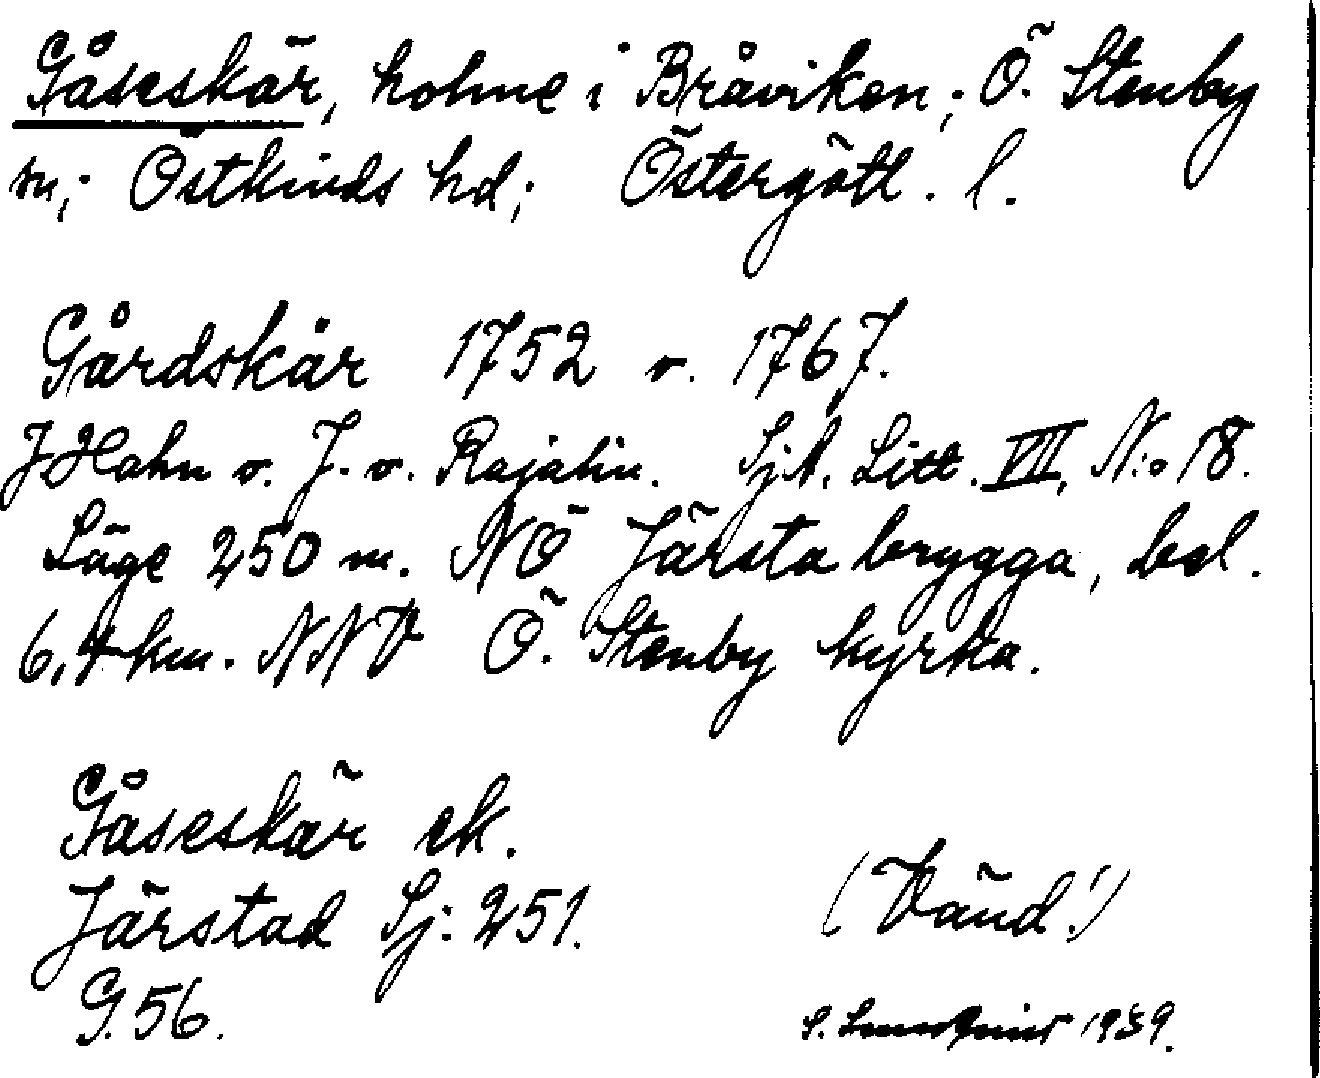 Gåseskär, holme i Bråviken; Ö. Stenby
sn; Östkinds hd; Östergötl. l.
Gårdskär 1752 o. 1767.
J Hahn o. J. v. Rajalin. SjA. Litt. VII, N:o 18.
Läge 250 m. NÖ Järsta brygga, bel.
6,4 km. NNV Ö. Stenby kyrka.
Gåseskär ek.
Järstad Sj: 251.
G. 56.
(Vänd!)
S. 1939.